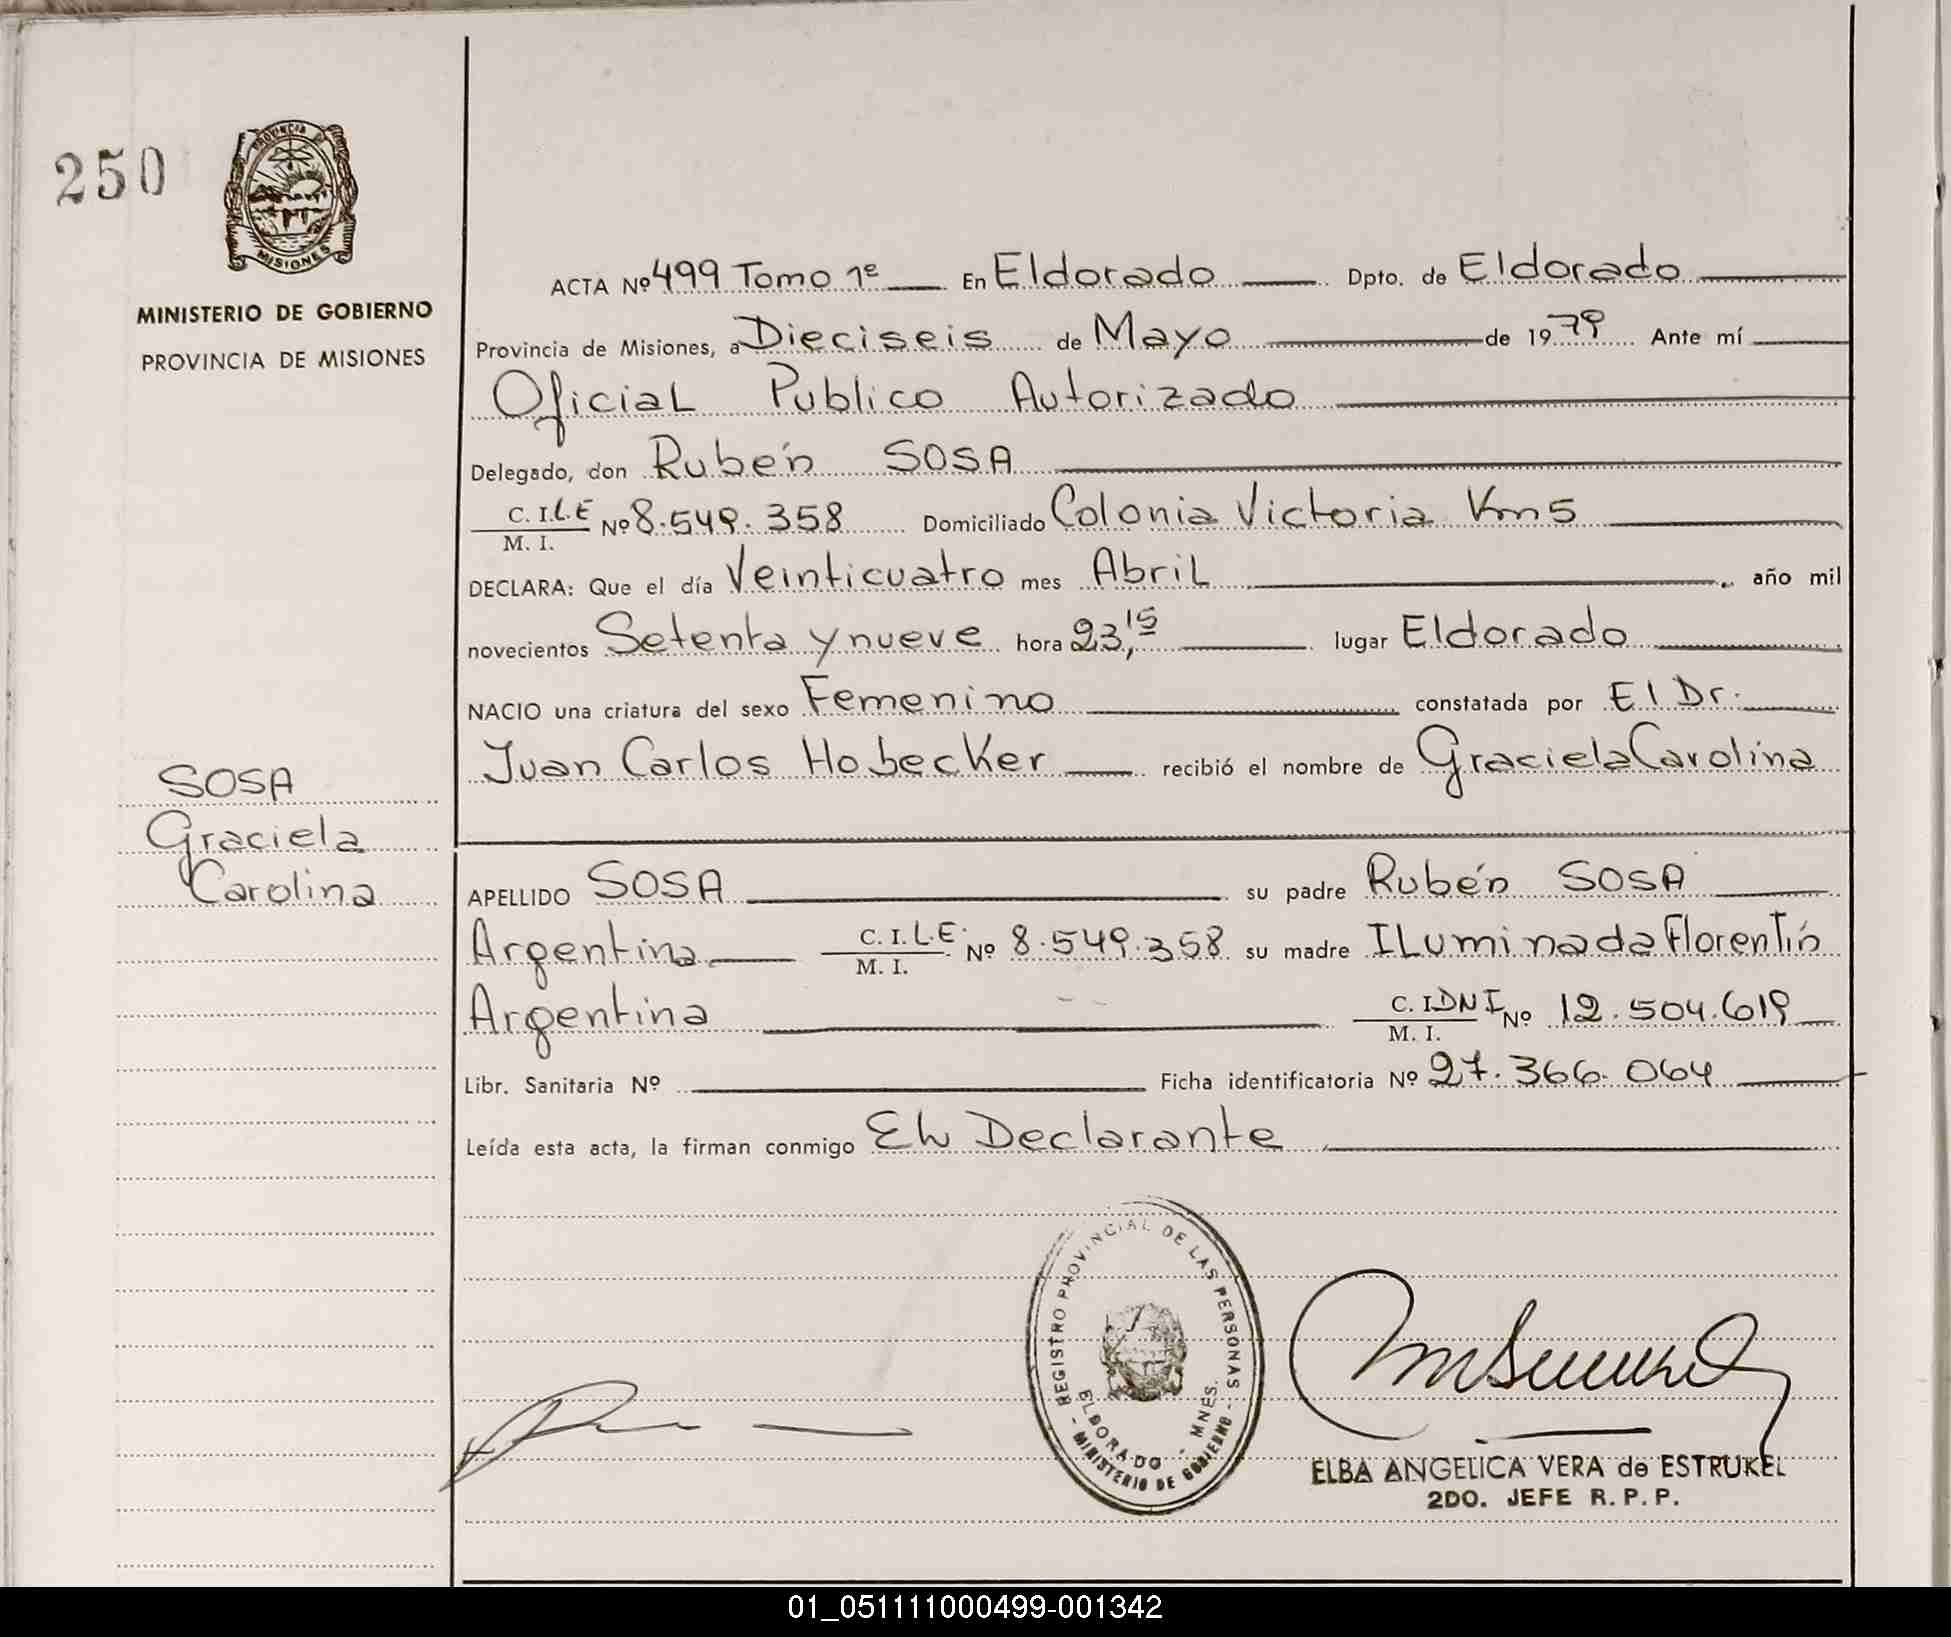 250
PROVINCIA DE
MISIONES
MINISTERIO DE GOBIERNO
PROVINCIA DE MISIONES
SOSA
Graciela
Carolina
ACTA Nº 499 Tomo 1º En Eldorado Dpto. de Eldorado
Provincia de Misiones, a Dieciseis de Mayo de 1979 Ante mí
Oficial Publico Autorizado
Delegado, don Rubén SOSA
C. I. L.E Nº 8.549.358 Domiciliado Colonia Victoria Km5
M. I.
DECLARA: Que el día Veinticuatro mes Abril año mil
novecientos Setenta y nueve hora 23,15 lugar Eldorado
NACIO una criatura del sexo Femenino constatada por El Dr.
Juan Carlos Hobecker recibió el nombre de Graciela Carolina
APELLIDO SOSA su padre Rubén SOSA
Argentina C. I. L.E. Nº 8.549.358 su madre ILuminada Florentín
M. I.
Argentina C. I DNI Nº 12.504.619
M. I.
Libr. Sanitaria Nº Ficha identificatoria Nº 27.366.064
Leída esta acta, la firman conmigo EL Declarante
REGISTRO PROVINCIAL DE LAS PERSONAS
ELDORADO - MNES.
- MINISTERIO DE GOBIERNO -
ELBA ANGELICA VERA de ESTRUKEL
2DO. JEFE R. P. P.
01_051111000499-001342